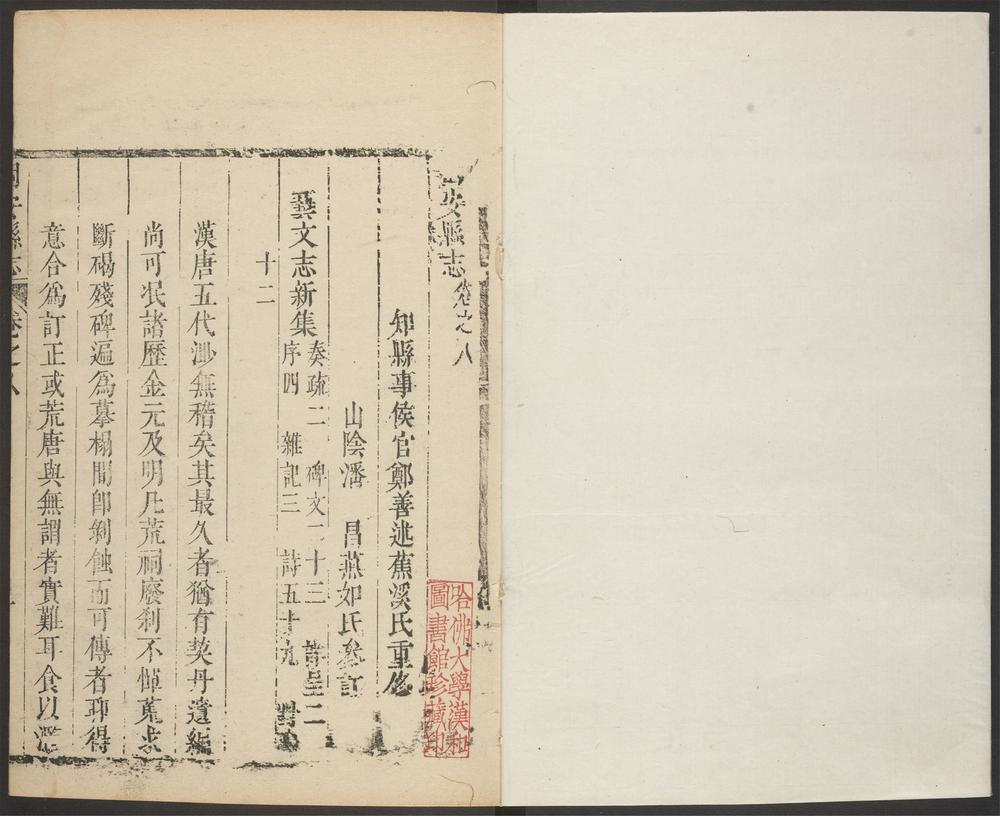 安縣志卷之八
知縣事侯官鄭善述蕉溪氏重修
山陰潘 昌燕如氏參訂
藝文志新集 奏疏二 碑文二十三 二
序四 雜記三 詩五十九 對
十二
漢唐五代渺無稽矣其最久者猶有契丹遺經
尚可泯諸歷金元及明凡荒祠廢刹不憚蒐求
斷碣殘碑遍爲摹榻間卽剝蝕而可傳者聊得
意合爲訂正或荒唐與無謂者實難耳食以濫
固安縣志 卷之八
哈佛大學漢和
圖書館珍藏印